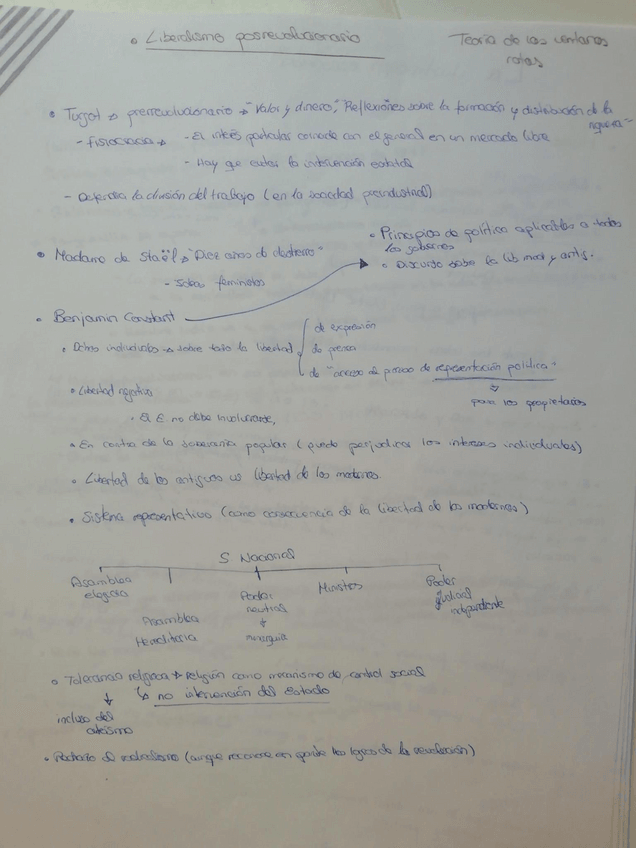 • Liberalismo posrevolucionario
Teoría de las ventanas
rotas
• Turgot → prerrevolucionario → "Valor y dinero", Reflexiones sobre la formación y distribución de la
riqueza
- Fisiocracia → - El interés particular coincide con el general en un mercado libre
- Hay que evitar la intervención estatal
- Defendía la división del trabajo (en la sociedad preindustrial)
• Madame de Staël → "Diez años de destierro"
- Ideas feministas
• Principios de política aplicables a todos
los gobiernos
• Discurso sobre la lib mod y antig.
• Benjamin Constant
• Dchos individuales → sobre todo la libertad
de expresión
de prensa
de "acceso al proceso de representación política"
↓
para los propietarios
• Libertad negativa
• El E no debe involucrarse,
• En contra de la soberanía popular (puede perjudicar los intereses individuales)
• Libertad de los antiguos vs libertad de los modernos.
• Sistema representativo (como consecuencia de la libertad de los modernos)
S Nacional
Asamblea
elegida
Asamblea
Hereditaria
Poder
neutral
↓
monarquía
Ministros
Poder
judicial
independiente
• Tolerancia religiosa → Religión como mecanismo de control social
↳ no intervención del estado
↓
incluso del
ateísmo
• Rechazo al radicalismo (aunque reconoce en parte los logros de la revolución)